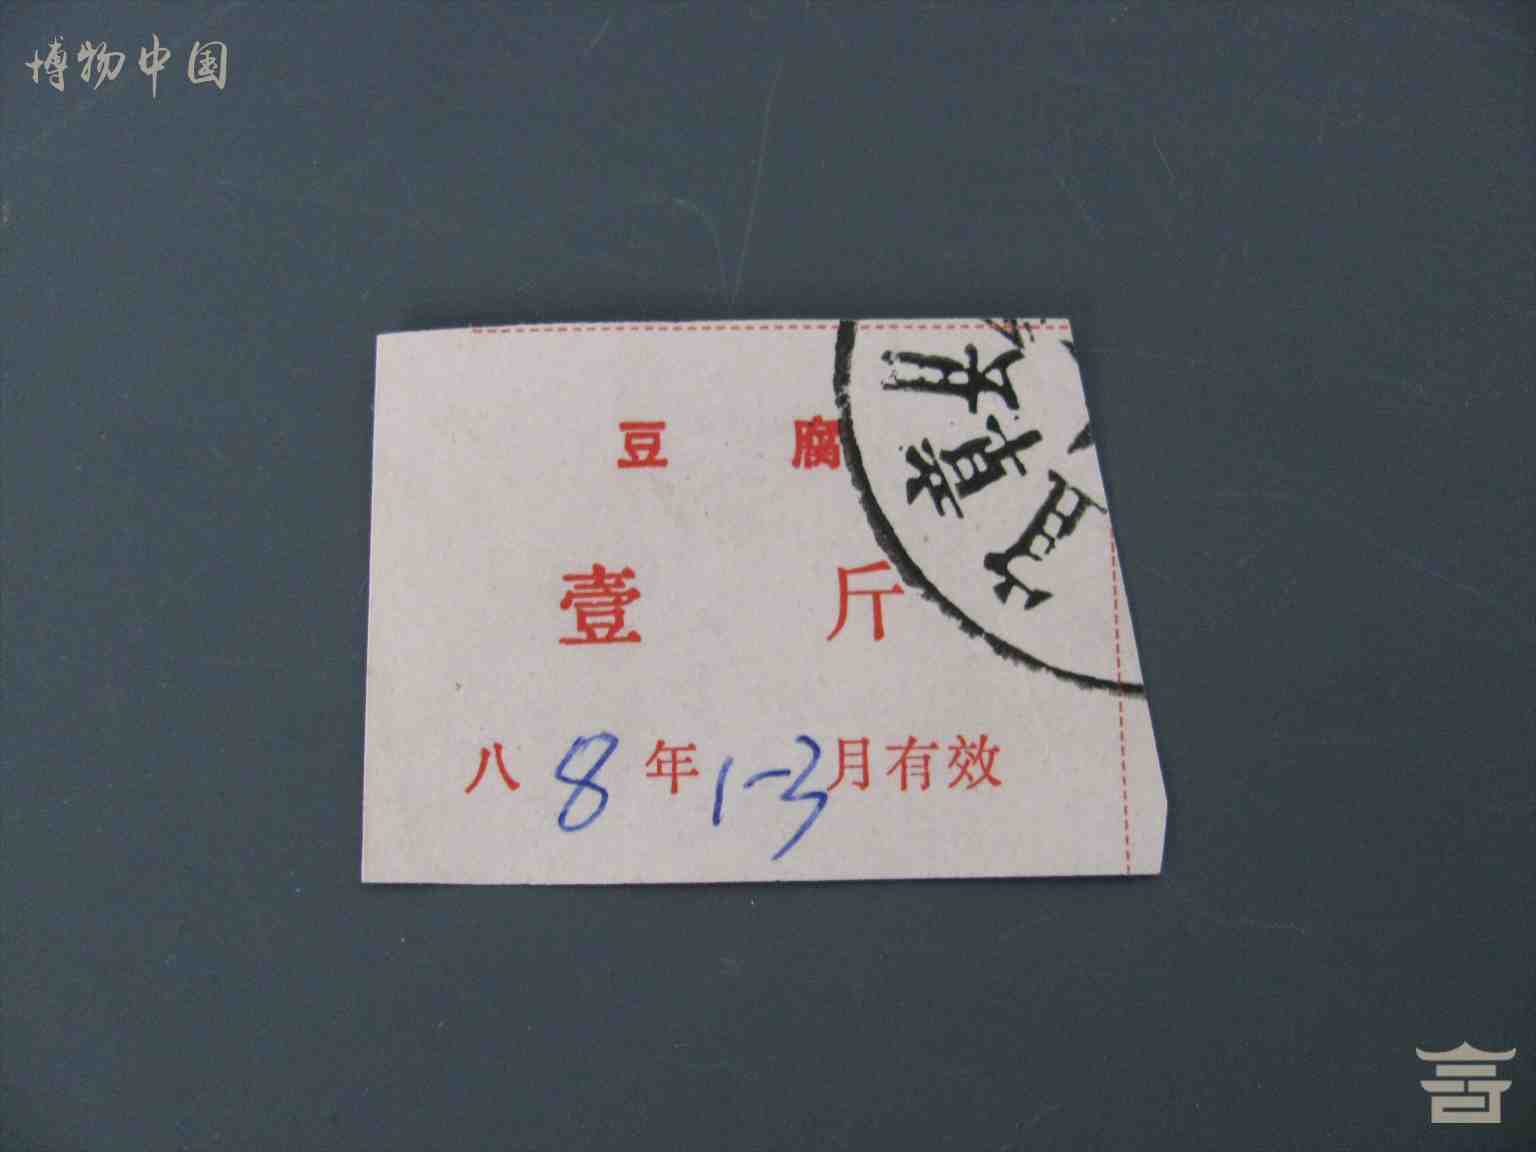 博物中国
豆 腐
壹 斤
八8年1-3月有效